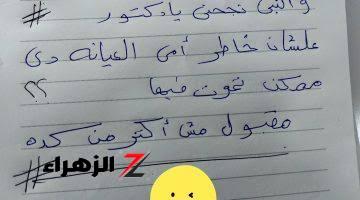 والنبي نجحنى يا دكتور #
علشان خاطر أمى العيانه دى
ممكن تموت فيها ؟؟
مقبول مش أكتر من كده
#
الزهراء